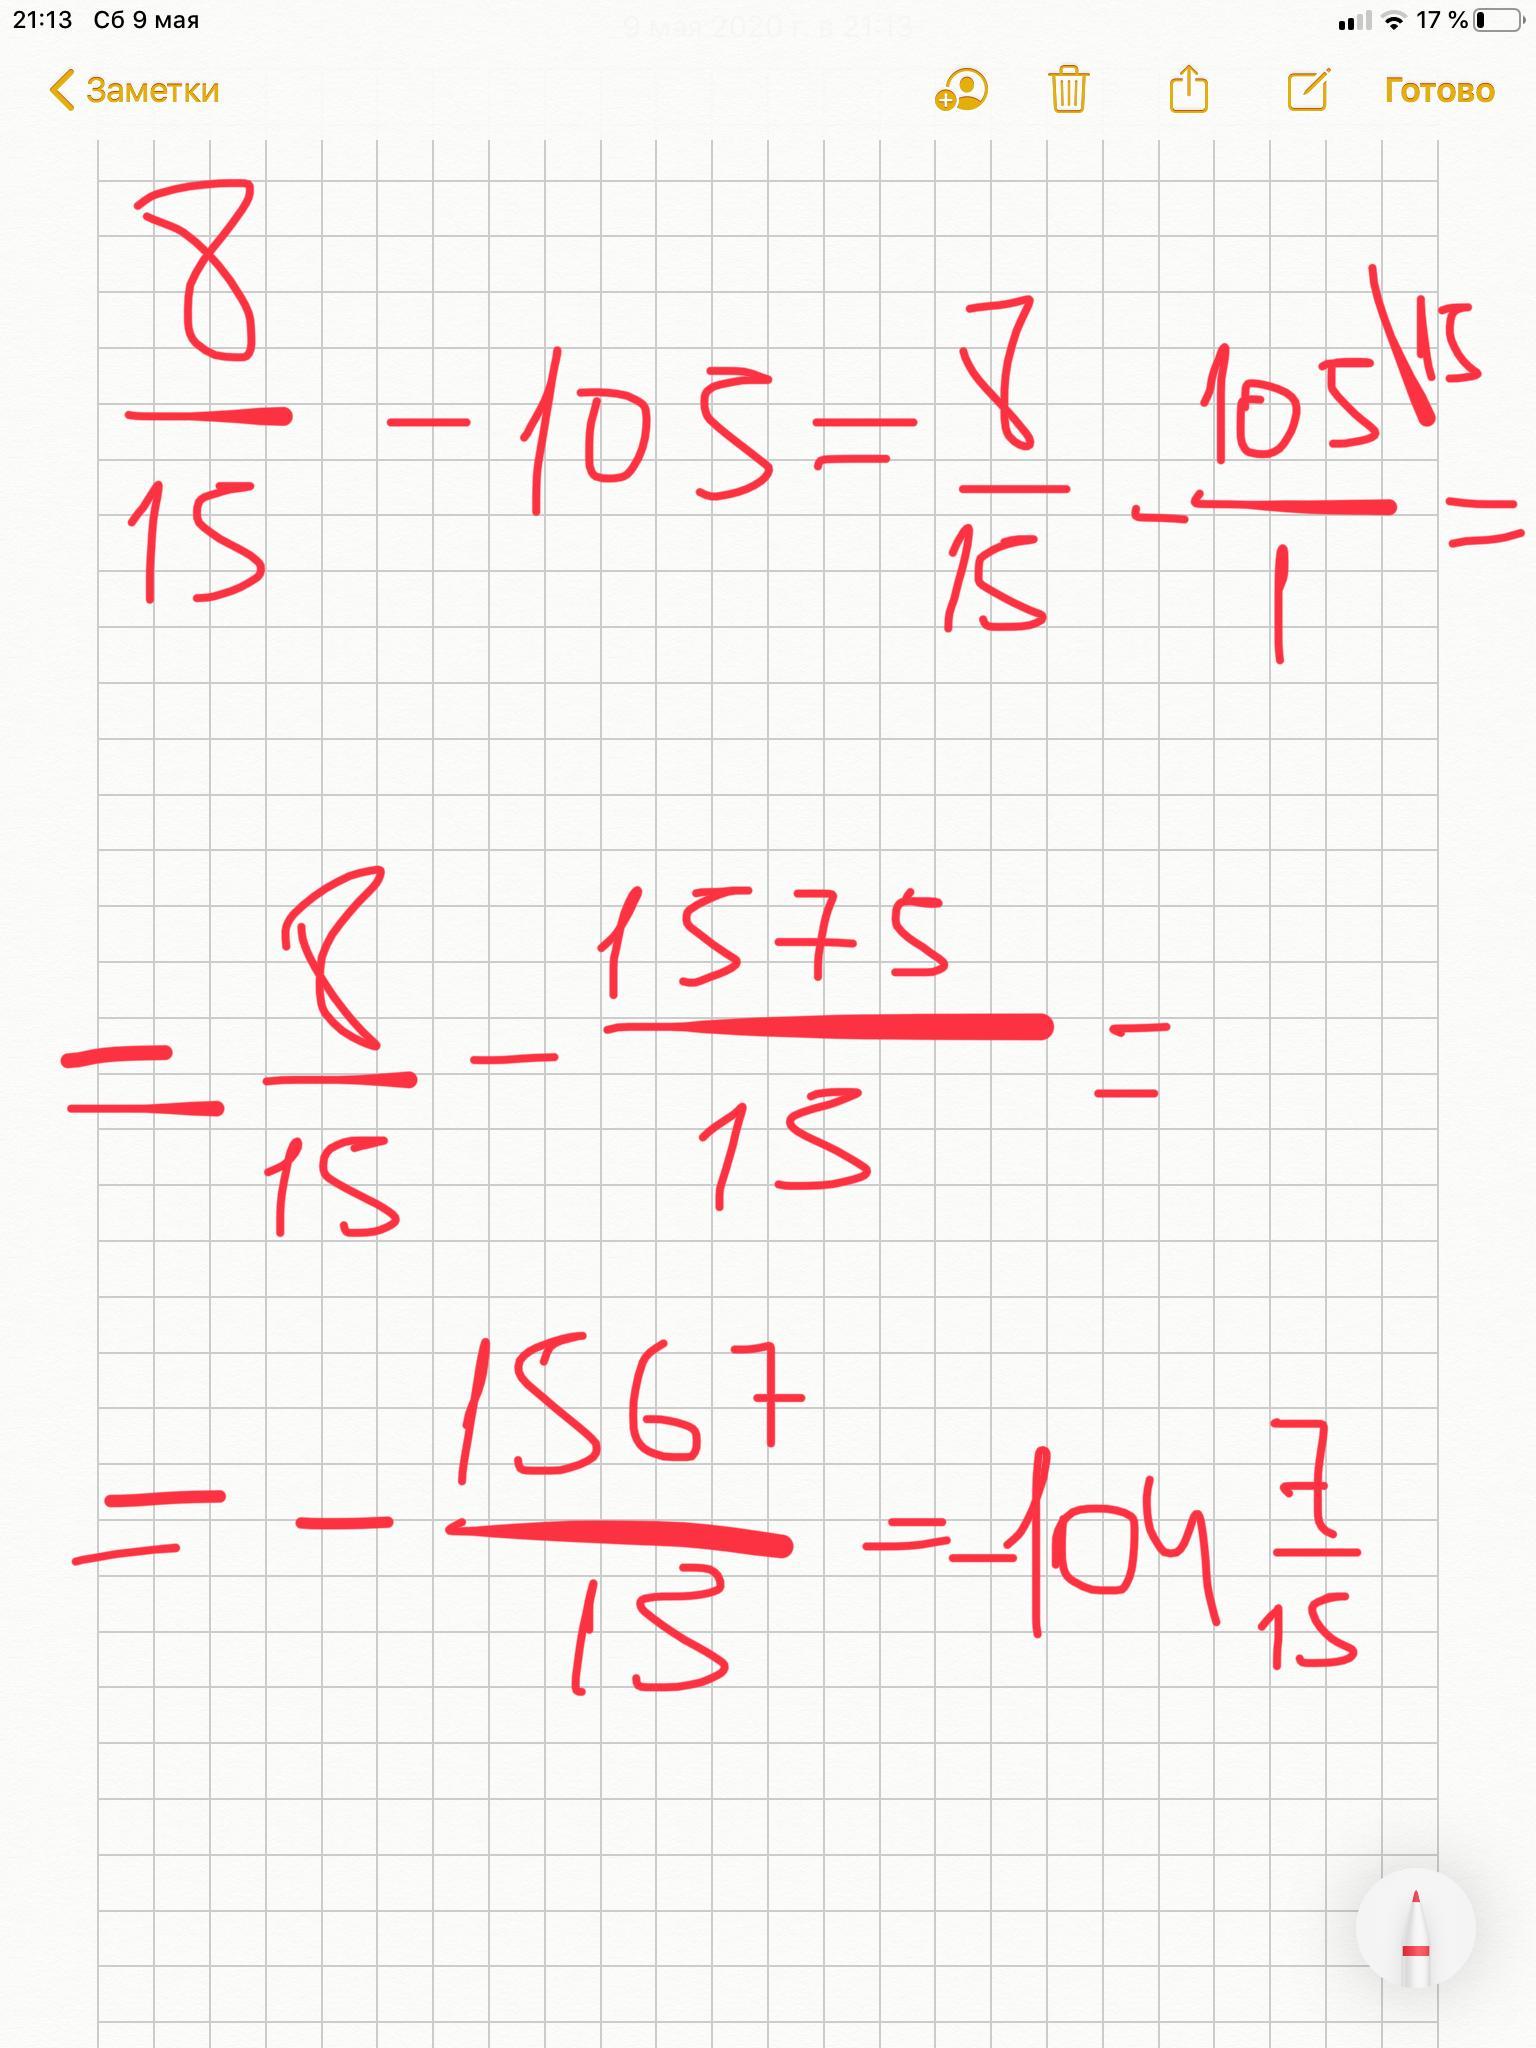 21:13 Сб 9 мая 17 %
9 мая 2020 г. в 21:13
Заметки Готово
8/15 - 105 = 8/15 - 105\15/1 =
= 8/15 - 1575/15 =
= - 1567/15 = -104 7/15